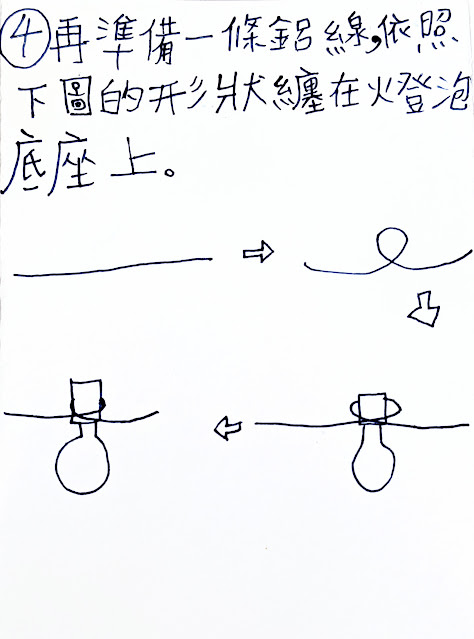 ④再準備一條鋁線,依照
下圖的形狀纏在火登泡
底座上。